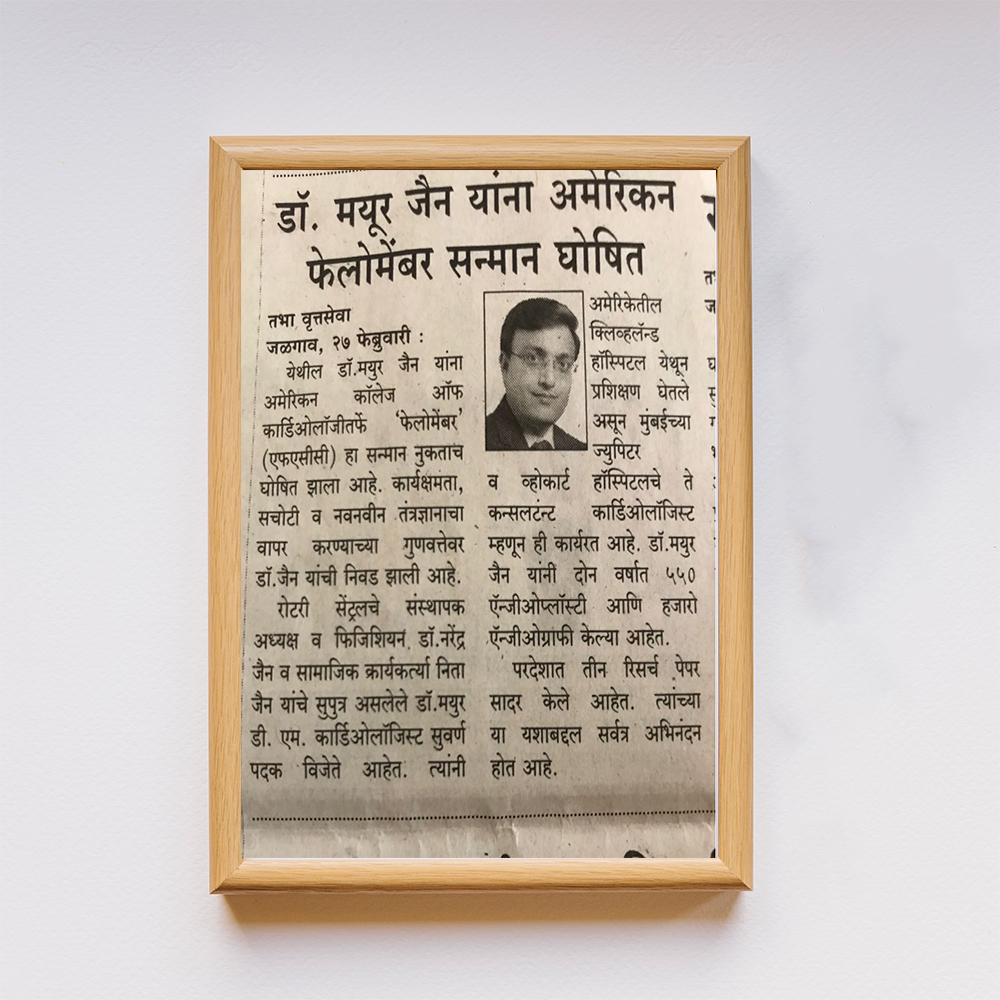 डॉ. मयूर जैन यांना अमेरिकन
फेलोमेंबर सन्मान घोषित
तभा वृत्तसेवा
जळगाव, २७ फेब्रुवारी :
येथील डॉ.मयुर जैन यांना
अमेरिकन कॉलेज ऑफ
कार्डिओलॉजीतर्फे ‘फेलोमेंबर’
(एफएसीसी) हा सन्मान नुकताच
घोषित झाला आहे. कार्यक्षमता,
सचोटी व नवनवीन तंत्रज्ञानाचा
वापर करण्याच्या गुणवत्तेवर
डॉ.जैन यांची निवड झाली आहे.
रोटरी सेंट्रलचे संस्थापक
अध्यक्ष व फिजिशियन डॉ.नरेंद्र
जैन व सामाजिक क्रार्यकर्त्या निता
जैन यांचे सुपुत्र असलेले डॉ.मयुर
डी. एम. कार्डिओलॉजिस्ट सुवर्ण
पदक विजेते आहेत. त्यांनी
अमेरिकेतील
क्लिव्हलॅन्ड
हॉस्पिटल येथून
प्रशिक्षण घेतले
असून मुंबईच्या
ज्युपिटर
व व्होकार्ट हॉस्पिटलचे ते
कन्सलटंन्ट कार्डिओलॉजिस्ट
म्हणून ही कार्यरत आहे. डॉ.मयुर
जैन यांनी दोन वर्षात ५५०
ऍन्जीओप्लॉस्टी आणि हजारो
ऍन्जीओग्राफी केल्या आहेत.
परदेशात तीन रिसर्च पेपर
सादर केले आहेत. त्यांच्या
या यशाबद्दल सर्वत्र अभिनंदन
होत आहे.